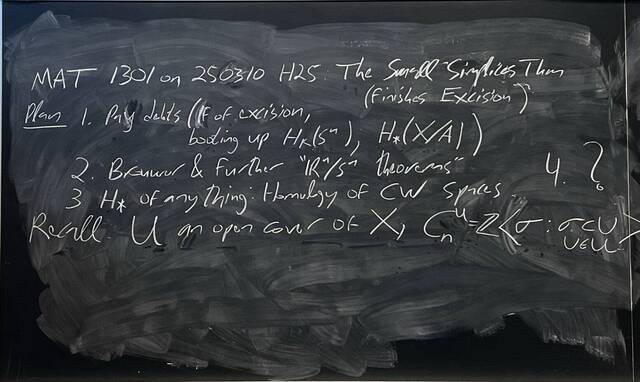 MAT 1301 on 250310 H25: The Small Simplices Thm
(Finishes Excision)
Plan 1. Pay debts (Pf of excision,
booting up Hₖ(Sⁿ), H*(X/A))
2. Brouwer & Further "ℝⁿ/Sⁿ theorems"
3 H* of anything: Homology of CW Spaces
4. ?
Recall U an open cover of X, Cₙᵁ = ℤ⟨σ : σ⊂U
U∈U⟩